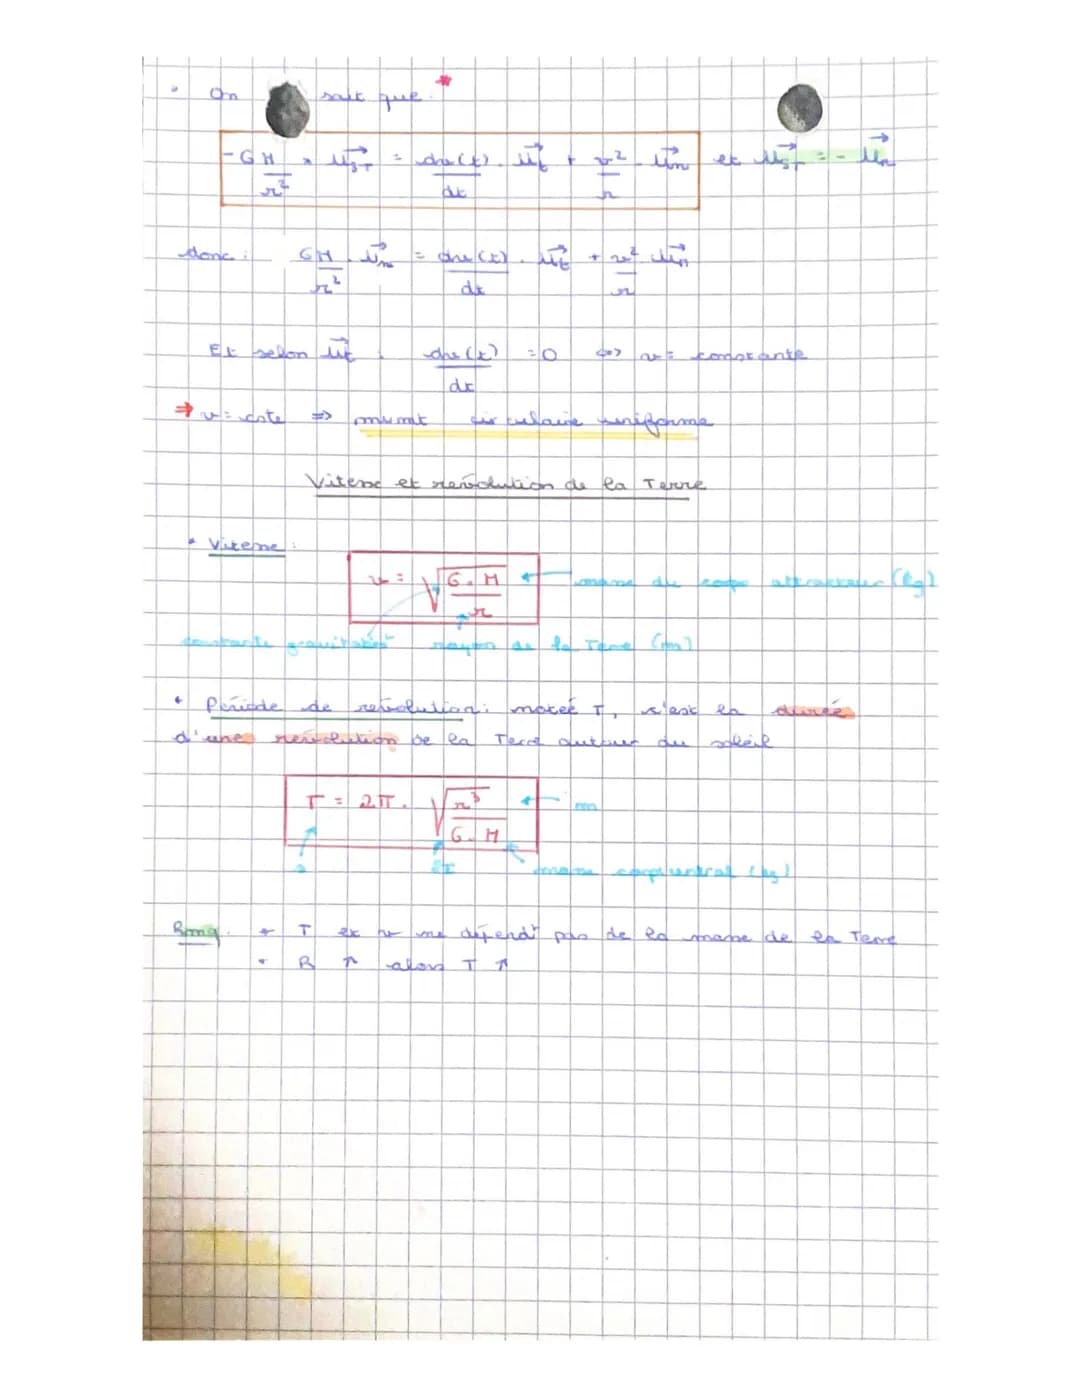 • On sait que : *
- GM/r² × u⃗ST = dv(t)/dt . u⃗t + v²/r . u⃗n et u⃗ST = - u⃗n
donc : GM/r² . u⃗n = dv(t)/dt . u⃗t + v²/r u⃗n
Et selon u⃗t : dv(t)/dt = 0 <=> v = constante
⇒ v = cste => mvmt circulaire uniforme
Vitesse et révolution de la Terre
• Vitesse :
v = √(G . M / r) ← masse du corps attracteur (kg)
constante gravitat° rayon de la Terre (m)
• Période de révolution : notée T, c'est la durée
d'une révolution de la Terre autour du soleil
T = 2π . √(r³ / G . M) ← m
s SI masse corps central (kg)
Rmq. • T et v ne dépend° pas de la masse de la Terre
• R ↑ alors T ↑